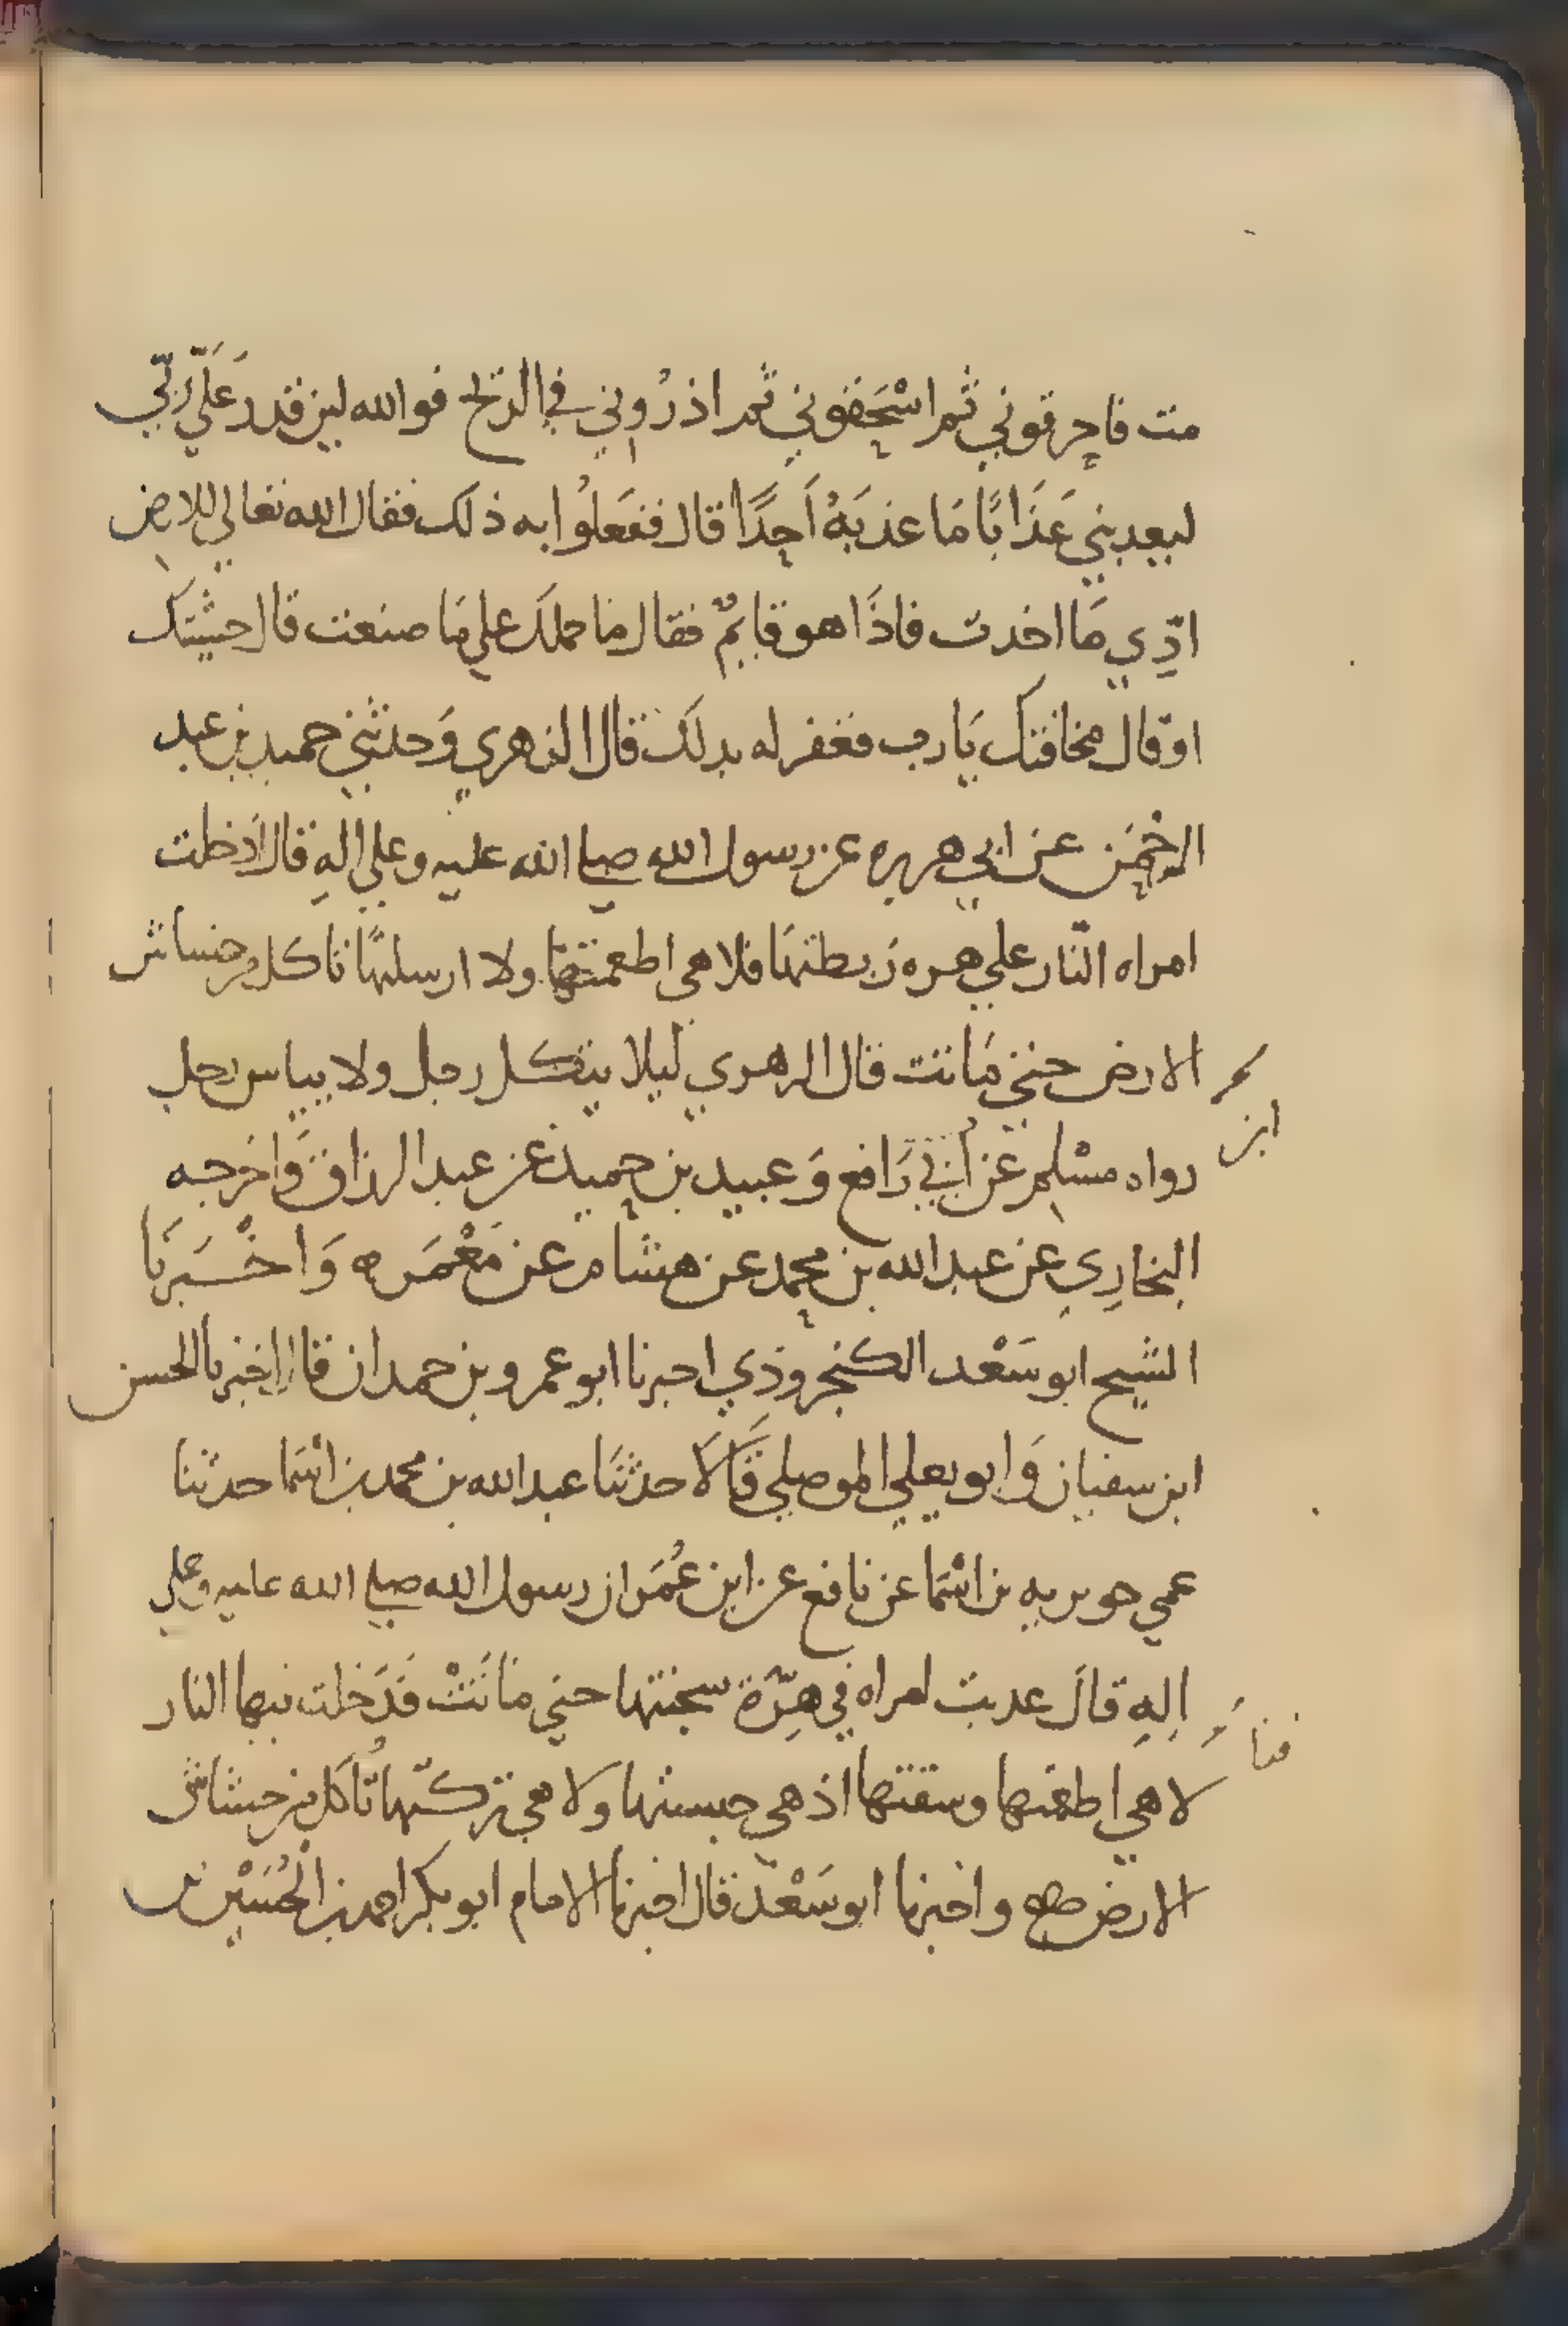 مت فاحرقوني ثم اسْحَقوني ثم اذرُوني في الريح فوالله لين قدر عَلَيَّ رَبّي
ليعدبني عَذَابًا مَا عذبَهُ اَحَدًا قال ففعَلوُا به ذلك فقال الله تعالي للارض
ادِّي مَا اخدت فاذَا هو قايمٌ فقال ما حملك علي مَا صنعت قال خشيتك
اوقال مخافتك يَا رب فغفر له بدلك قال الزهري وَحدثني حميد بن عبد
الرحْمَن عن ابي هريره عن رسول الله صلي الله عليه وعلي الهِ قال دَخلت
امراه النّار علي هره رَبطتهَا فلا هي اطعمتهَا ولا ارسلتهَا تاكل من خشاش
الارض حتي مَاتت قال الزهري ليلا يتكل رجل ولا يياس رجل
رواه مسْلم عن ابن رَافع وَعبيد بن حميد عن عبد الرزاق وَاخرجه
ابن
البخارِي عن عبد الله بن محمد عن هشام عن مَعْمَر ه وَاخْبَرنَا
الشيح ابو سَعْد الكنجروذي احبرنا ابو عمرو بن حمدان قال اخبرنا الحسن
ابن سفيان وَابو يعلي الموصلي قَالَا حدثنَا عبد الله بن محمد بن اسْمَا حدثنا
عمي جويريه بن اسْمَا عن نافع عن ابن عُمَر ان رسول الله صلي الله عليه وعلي
الهِ قالَ عدبت امراه في هِرَّة سجنتها حتي مَاتَتْ فَدَخلت فيها النار
لا هي اطعمتها وسقتها اذ هي حبستها ولا هي تركتها تُاكل من خشاش
الارض صح واخبرنا ابو سَعْد قال اخبرنا الامام ابو بكر احمد بن الحُسَيْن بن